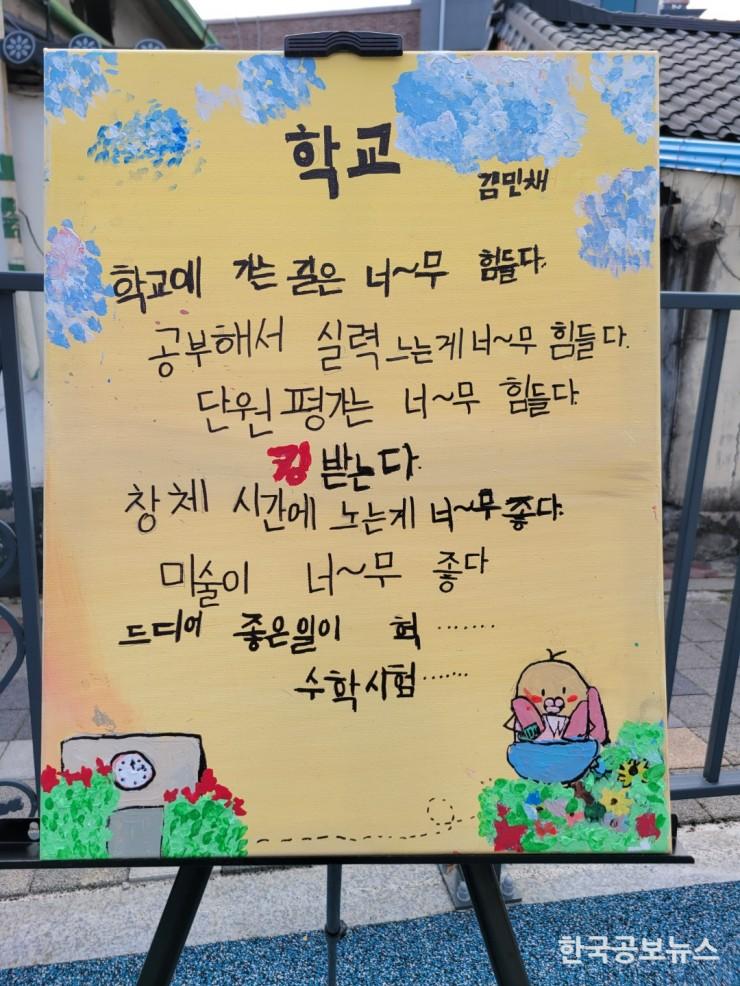 학교
김민채
학교에 가는 길은 너~무 힘들다.
공부해서 실력 느는게 너~무 힘들다.
단원 평가는 너~무 힘들다.
킹 받는다.
창체 시간에 노는게 너~무 좋다.
미술이 너~무 좋다
드디어 좋은일이 헉 .......
수학시험.......
한국공보뉴스